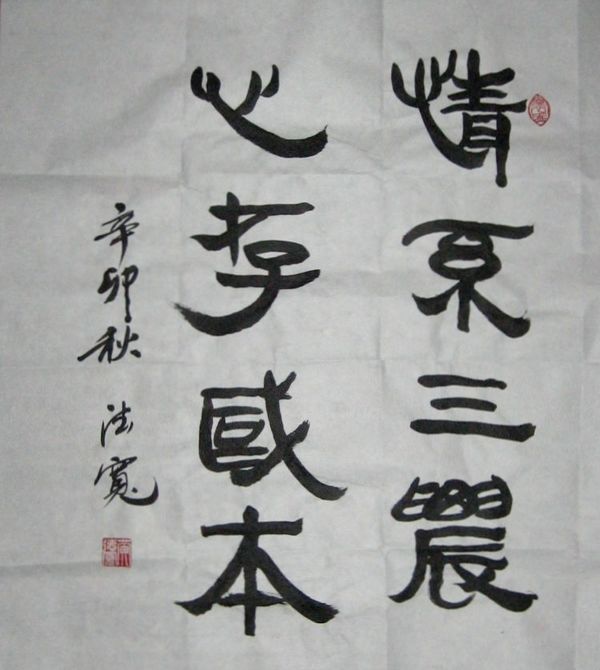 情系三農
心存國本
辛卯秋 法寬